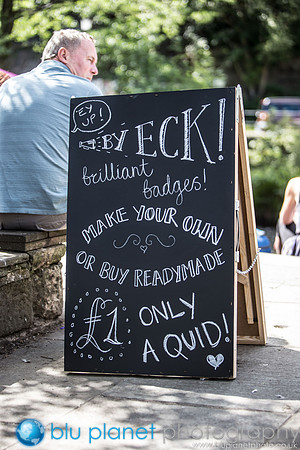 EY UP!
BY ECK!
brilliant
badges!
MAKE YOUR OWN
OR BUY READYMADE
£1
ONLY
A QUID!
blu planet photography
www.bluplanetphoto.co.uk